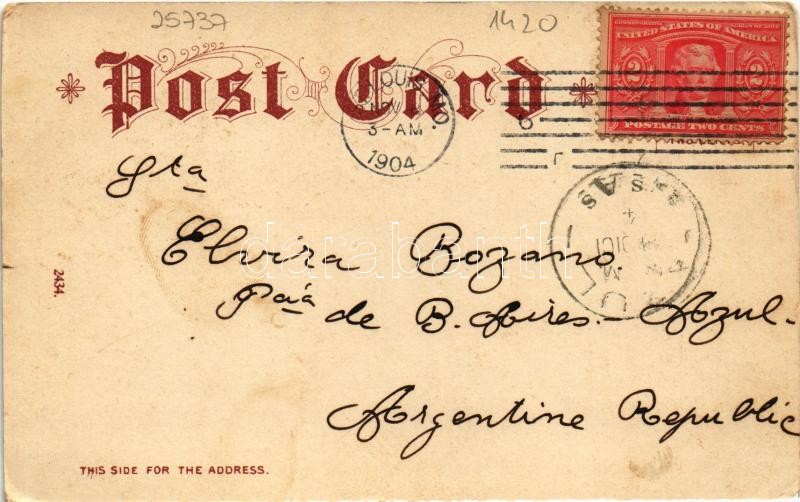 25737
1420
Post Card
UNITED STATES OF AMERICA
2 2
POSTAGE TWO CENTS
3-AM
1904
Sta
Elvira Bozano
Pciá de B. Aires.- Azul.
Argentine Republic
2434.
THIS SIDE FOR THE ADDRESS.
darabanth